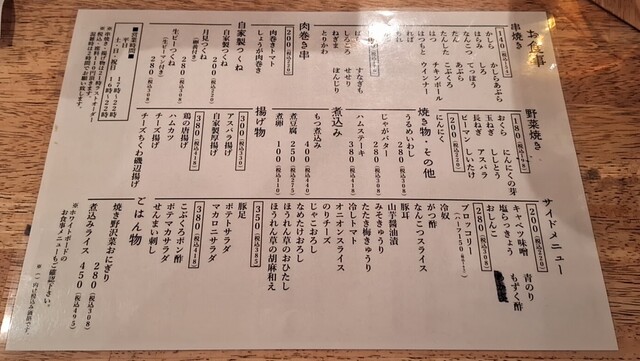 お食事
串焼き
140 (税込154)
かしら かしらあぶら
はらみ しろ
なんこつ てっぽう
たん あぶら
たんした あぶら
はつ チキンボール
はつもと ウインナー
すなぎも
しろころ せせり
ねぎま ぼんじり
とりかわ
肉巻き串
200 (税込220)
肉巻きトマト
しょうが肉巻き
自家製つくね
自家製つくね 200 (税込220)
月見つくね 280 (税込308)
生ピーつくね 280 (税込308)
(生ピーマン付き)
■営業時間■
平日 17時〜22時
土・日・祝日 12時〜22時
野菜焼き
180 (税込198)
おくら にんにくの芽
玉ねぎ ししとう
長ねぎ アスパラ
ピーマン しいたけ
200 (税込220)
にんにく
焼き物・その他
うるめいわし 280 (税込308)
じゃがバター 280 (税込308)
ハムステーキ 380 (税込418)
煮込み
もつ煮込み 400 (税込440)
煮豆腐 250 (税込275)
煮卵 100 (税込110)
揚げ物
300 (税込330)
アスパラ揚げ
自家製厚揚げ
380 (税込418)
鶏の唐揚げ
ハムカツ
チーズ揚げ
チーズちくわ磯辺揚げ
サイドメニュー
200 (税込220)
キャベツ味噌 青のり
塩らっきょう もずく酢
おしんこ
280 (税込308)
ブロッコリー
(ハーフ150 税込165)
冷奴
がつ酢
なんこつスライス
豚耳
山芋醤油漬
みそきゅうり
たたき梅きゅうり
冷しトマト
オニオンスライス
のりチーズ
じゃこおろし
なめたけおろし
ほうれん草のおひたし
ほうれん草の胡麻和え
350 (税込385)
豚足
ポテトサラダ
マカロニサラダ
380 (税込418)
こぶくろポン酢
ポテマカサラダ
せんまい刺し
ごはん物
焼き野沢菜おにぎり 280 (税込308)
煮込みライス 450 (税込495)
※ホワイトボードの
お食事メニューもご確認下さい。
※( )内は税込み価格です。